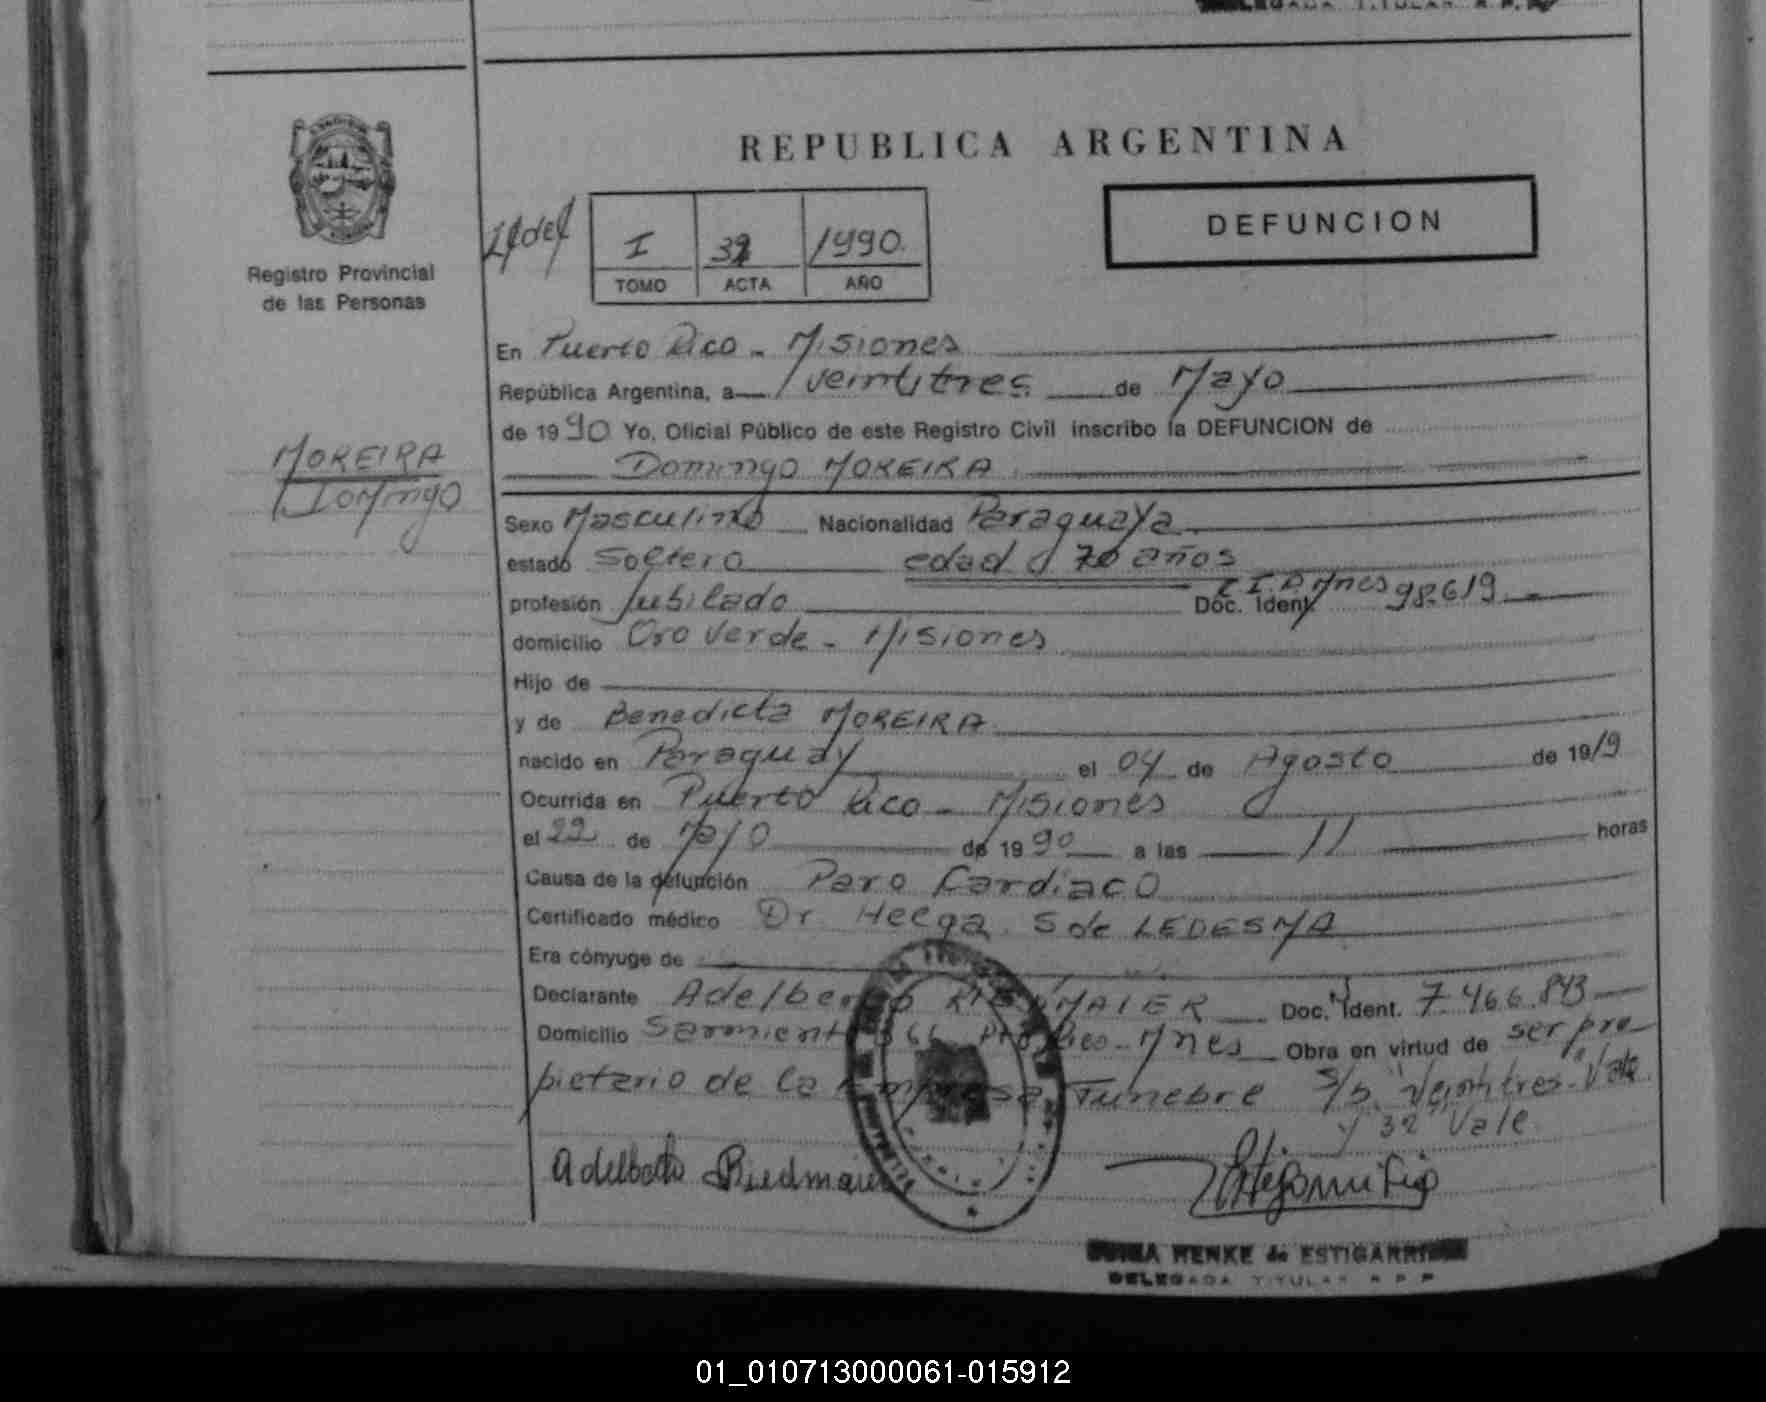 REPUBLICA ARGENTINA
DEFUNCION
I 32 1990
TOMO ACTA AÑO
Registro Provincial
de las Personas
En Puerto Rico - Misiones
República Argentina, a veintitres de Mayo
de 1990 Yo, Oficial Público de este Registro Civil inscribo la DEFUNCION de
Domingo MOREIRA
MOREIRA
Domingo
Sexo Masculino Nacionalidad Paraguaya
estado Soltero edad 70 años
profesión Jubilado Doc. Ident. C.I.P. Mnes 98.619
domicilio Oro Verde - Misiones
Hijo de
y de Benedicta MOREIRA
nacido en Paraguay el 04 de Agosto de 1919
Ocurrida en Puerto Rico - Misiones
el 22 de Mayo de 1990 a las 11 horas
Causa de la defunción Paro Cardiaco
Certificado médico Dr. Helga S de LEDESMA
Era cónyuge de
Declarante Adelberto RIEDMAIER Doc. Ident. 7.466.843
Domicilio Sarmiento 366 Pto Rico - Mnes Obra en virtud de ser pro-
pietario de la Empresa Funebre S/b "Veintitres" Vale
y "32" Vale
Adelberto Riedmaier
HENKE de ESTIGARRIBIA
DELEGADA TITULAR R P P
01_010713000061-015912